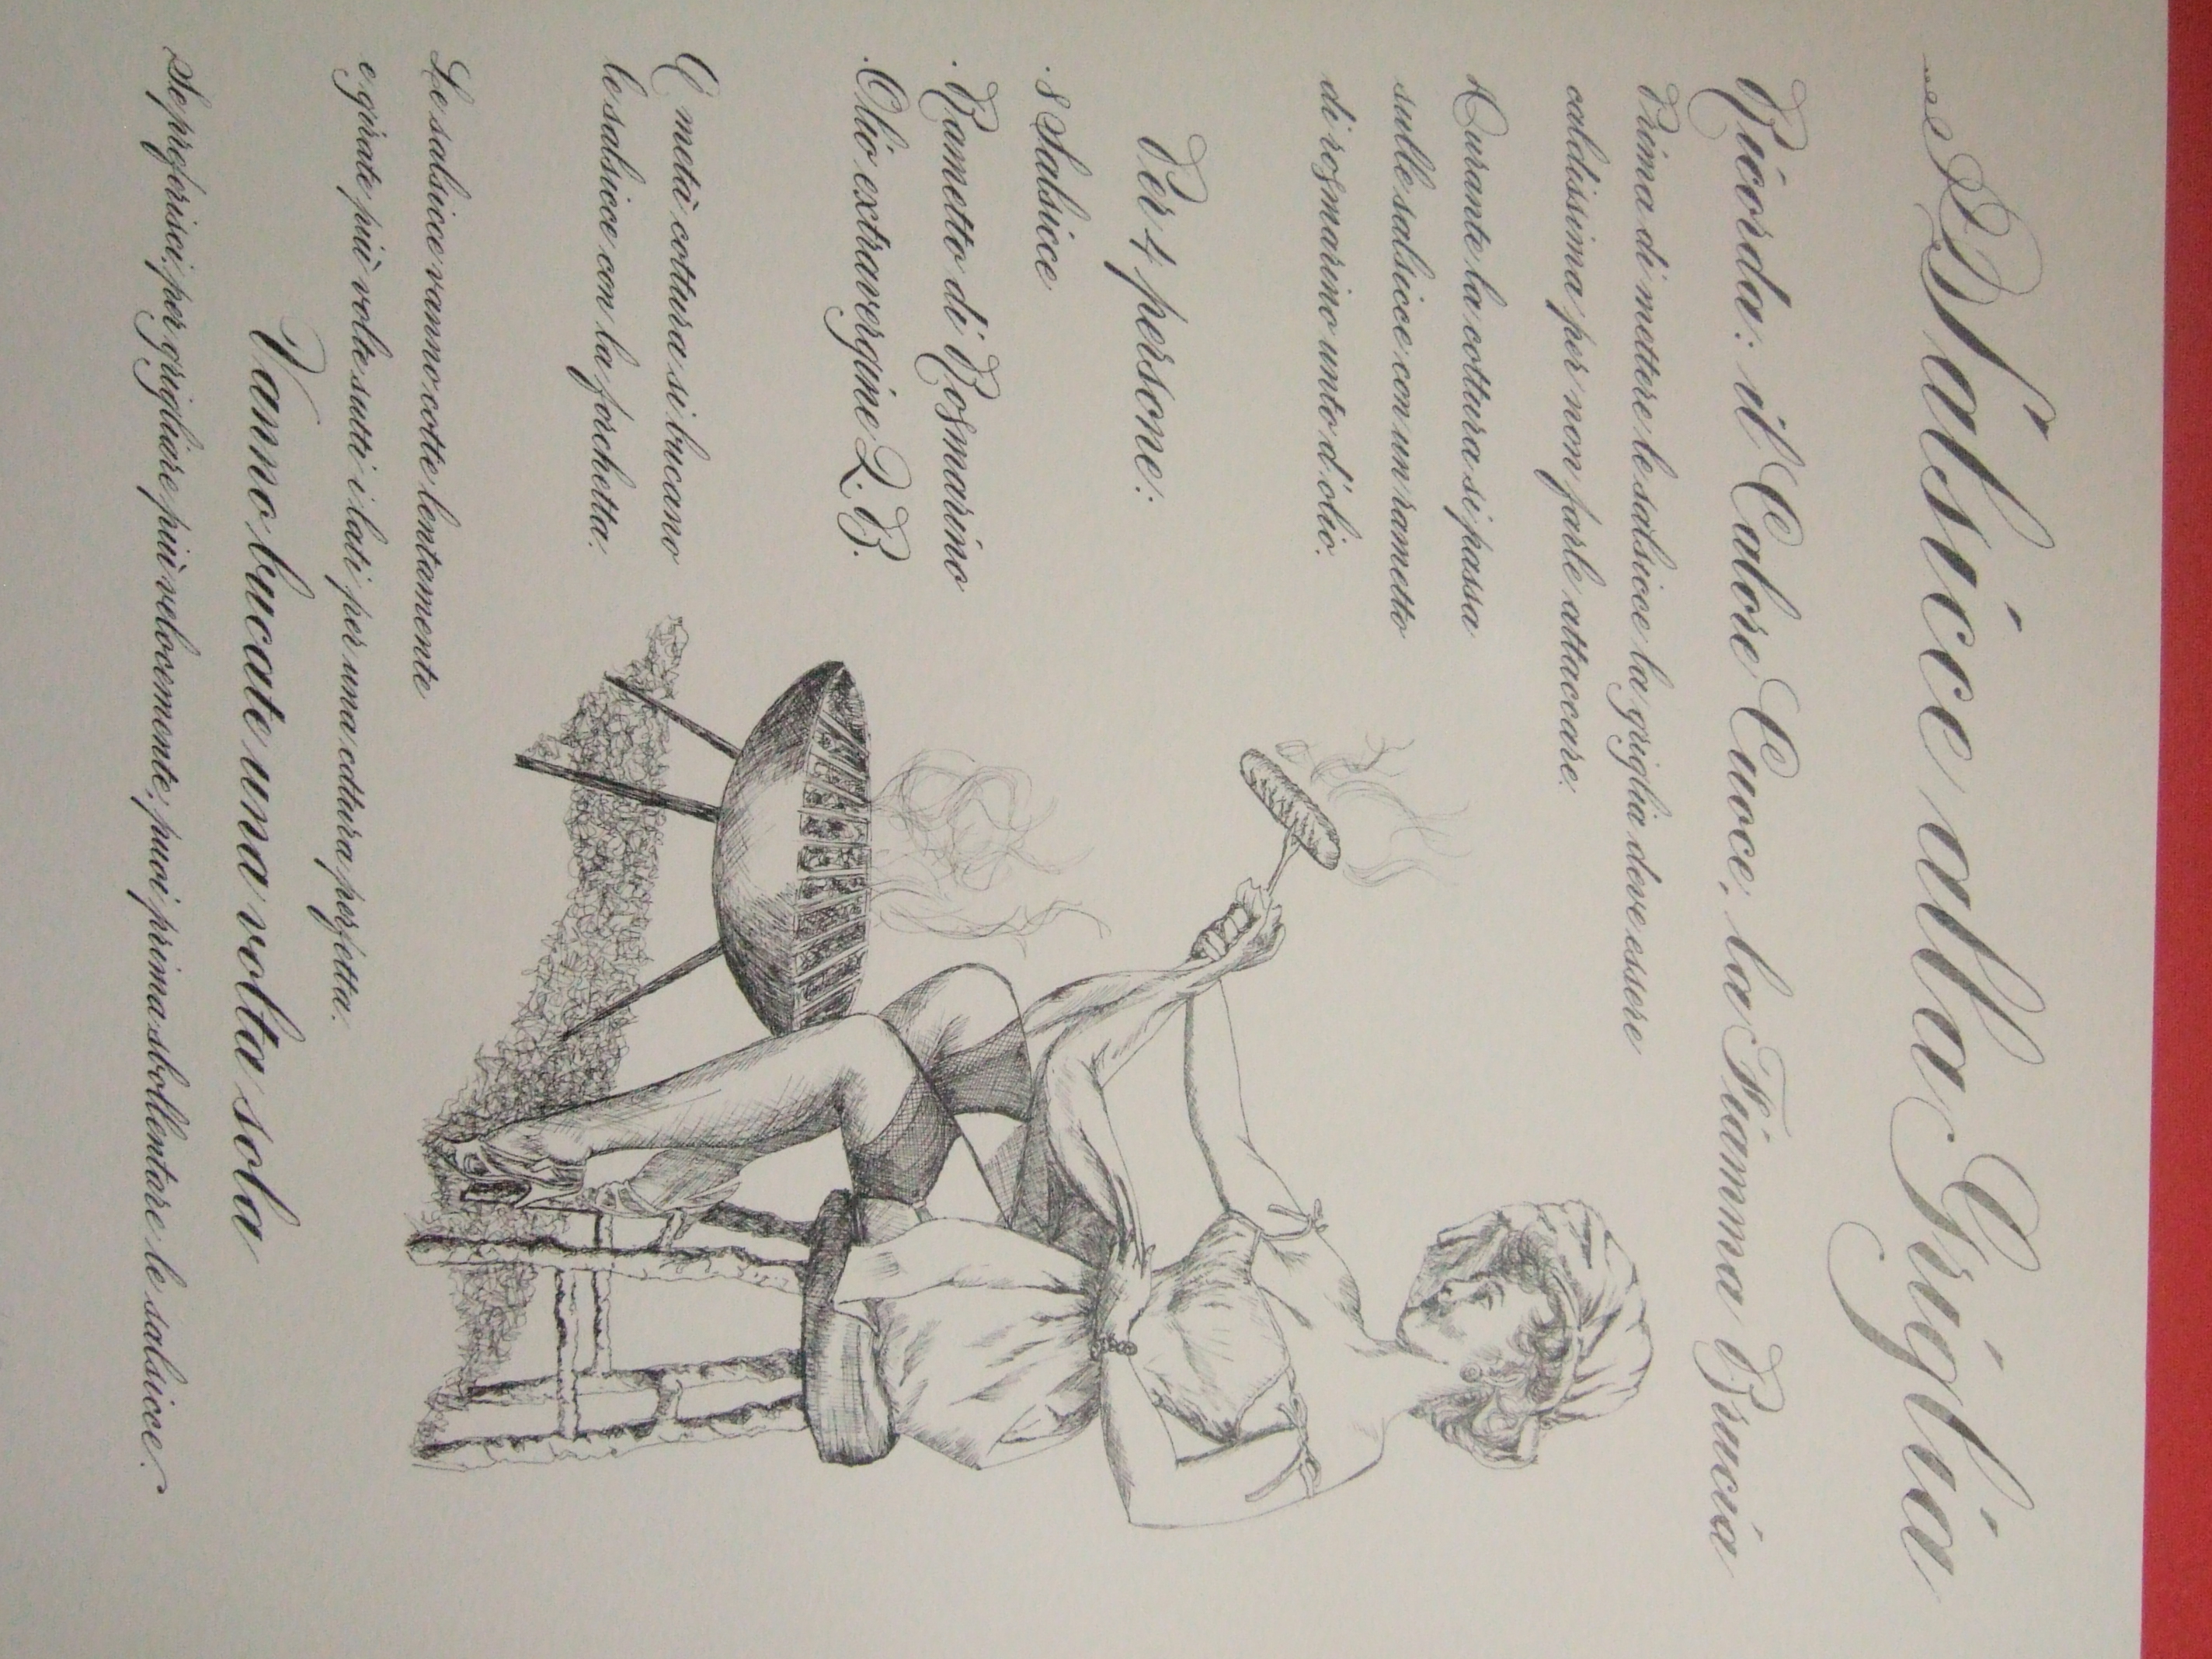 Salsicce alla Griglia
Ricorda: il Calore Cuoce, la Fiamma Brucia
Prima di mettere le salsicce la griglia deve essere
caldissima per non farle attaccare.
Durante la cottura si passa
sulle salsicce con un rametto
di rosmarino unto d'olio.
Per 4 persone:
. 8 Salsicce
. Rametto di Rosmarino
. Olio extravergine Q.B.
A metà cottura si bucano
le salsicce con la forchetta.
Le salsicce vanno cotte lentamente
e girate più volte su tutti i lati per una cottura perfetta.
Vanno bucate una volta sola
Se preferisci, per grigliare più velocemente, puoi prima sbollentare le salsicce.